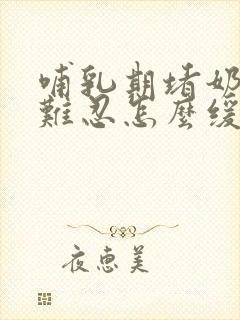 哺乳期堵奶
難忍怎麼緩
夜惠美